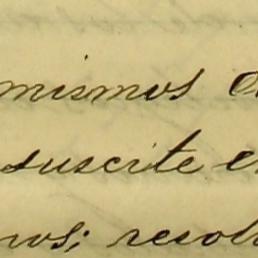 mismos
suscite e
nos; resol